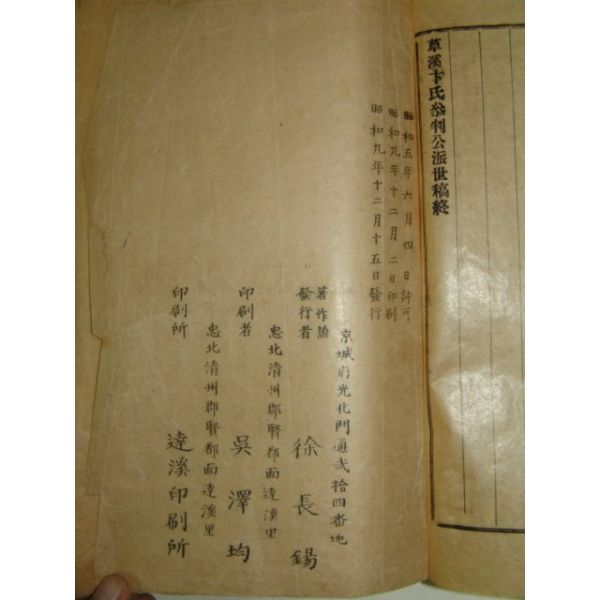 草溪卞氏參判公派世稿終
昭和五年六月四日許可
昭和九年十二月二日印刷
昭和九年十二月十五日發行
京城府光化門通貳拾四番地
著作兼
發行者 徐長錫
忠北清州郡賢都面達溪里
印刷者 吳澤均
忠北清州郡賢都面達溪里
印刷所 達溪印刷所